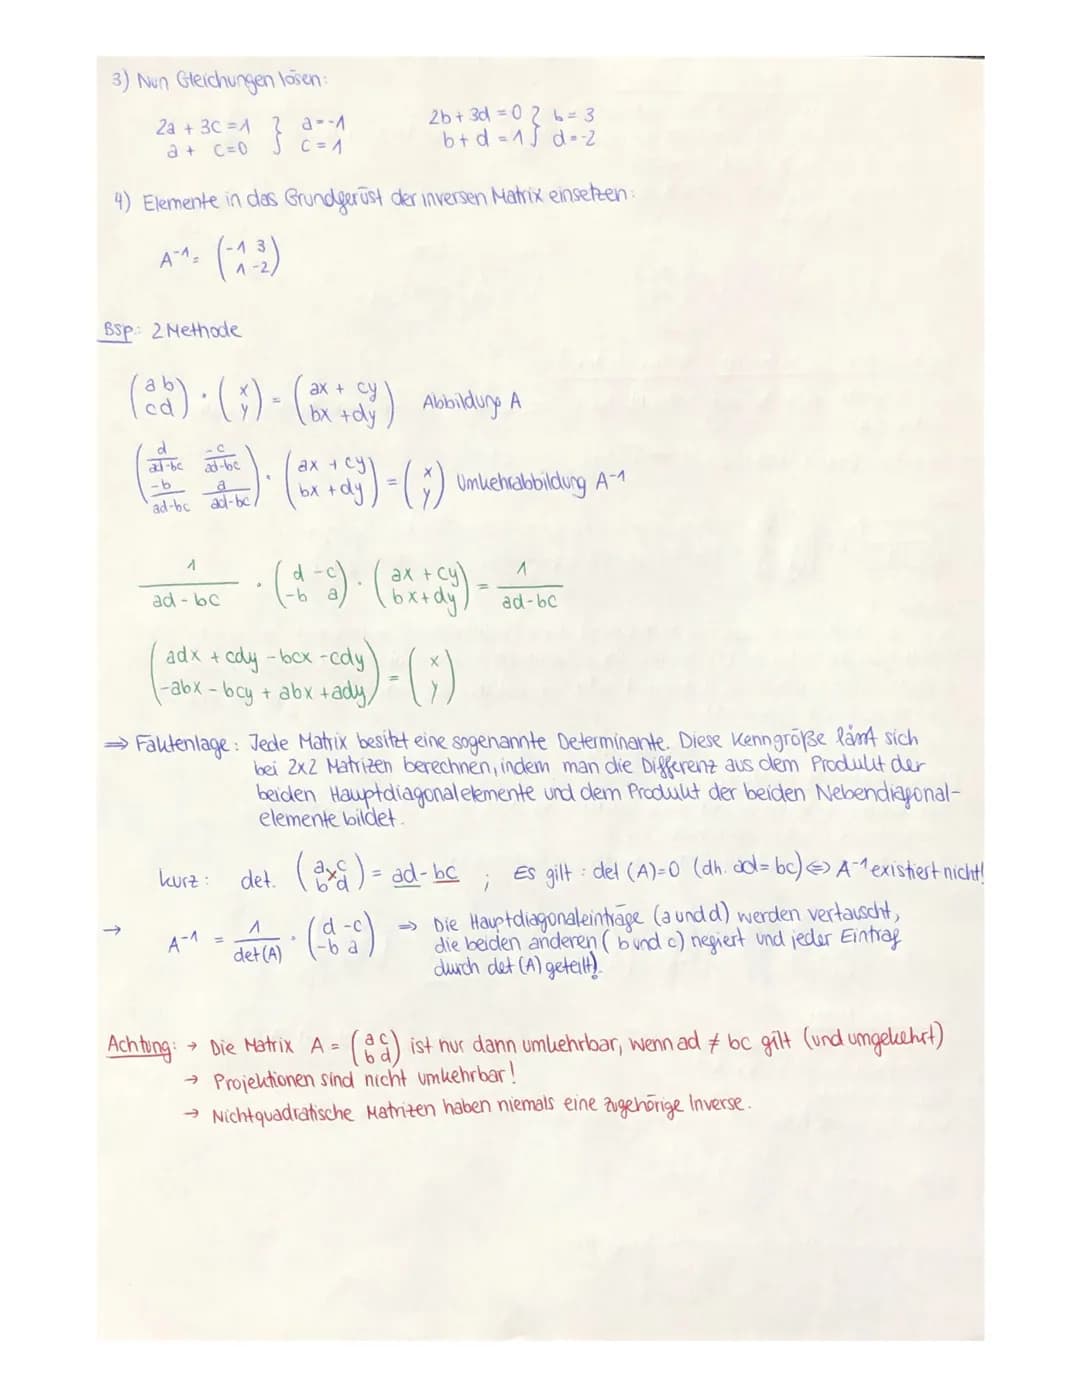 3) Nun Gleichungen lösen:
2a + 3c = 1 } a = -1    2b + 3d = 0 } b = 3
a + c = 0 } c = 1    b + d = 1 } d = -2
4) Elemente in das Grundgerüst der inversen Matrix einsetzen:
A⁻¹ = (-1 3
1 -2)
Bsp.: 2 Methode
(a b) · (x) = (ax + cy) Abbildung A
(c d) (y) (bx + dy)
(d/ad-bc -c/ad-bc) · (ax + cy) = (x) Umkehrabbildung A⁻¹
(-b/ad-bc a/ad-bc) (bx + dy) (y)
1/ad - bc · (d -c) · (ax + cy) = 1/ad-bc
(-b a) (bx + dy)
(adx + cdy - bcx - cdy) = (x)
(-abx - bcy + abx + ady) (y)
⇒ Faktenlage: Jede Matrix besitzt eine sogenannte Determinante. Diese Kenngröße lässt sich
bei 2x2 Matrizen berechnen, indem man die Differenz aus dem Produkt der
beiden Hauptdiagonalelemente und dem Produkt der beiden Nebendiagonal-
elemente bildet.
kurz: det. (a c) = ad - bc ; Es gilt: det (A)=0 (dh. ad = bc) ⇔ A⁻¹ existiert nicht!
(b d)
→ A⁻¹ = 1/det (A) · (d -c) ⇒ Die Hauptdiagonaleinträge (a und d) werden vertauscht,
(-b a) die beiden anderen (b und c) negiert und jeder Eintrag
durch det (A) geteilt).
Achtung: → Die Matrix A = (a c) ist nur dann umkehrbar, wenn ad ≠ bc gilt (und umgekehrt)
(b d)
→ Projektionen sind nicht umkehrbar!
→ Nichtquadratische Matrizen haben niemals eine zugehörige Inverse.